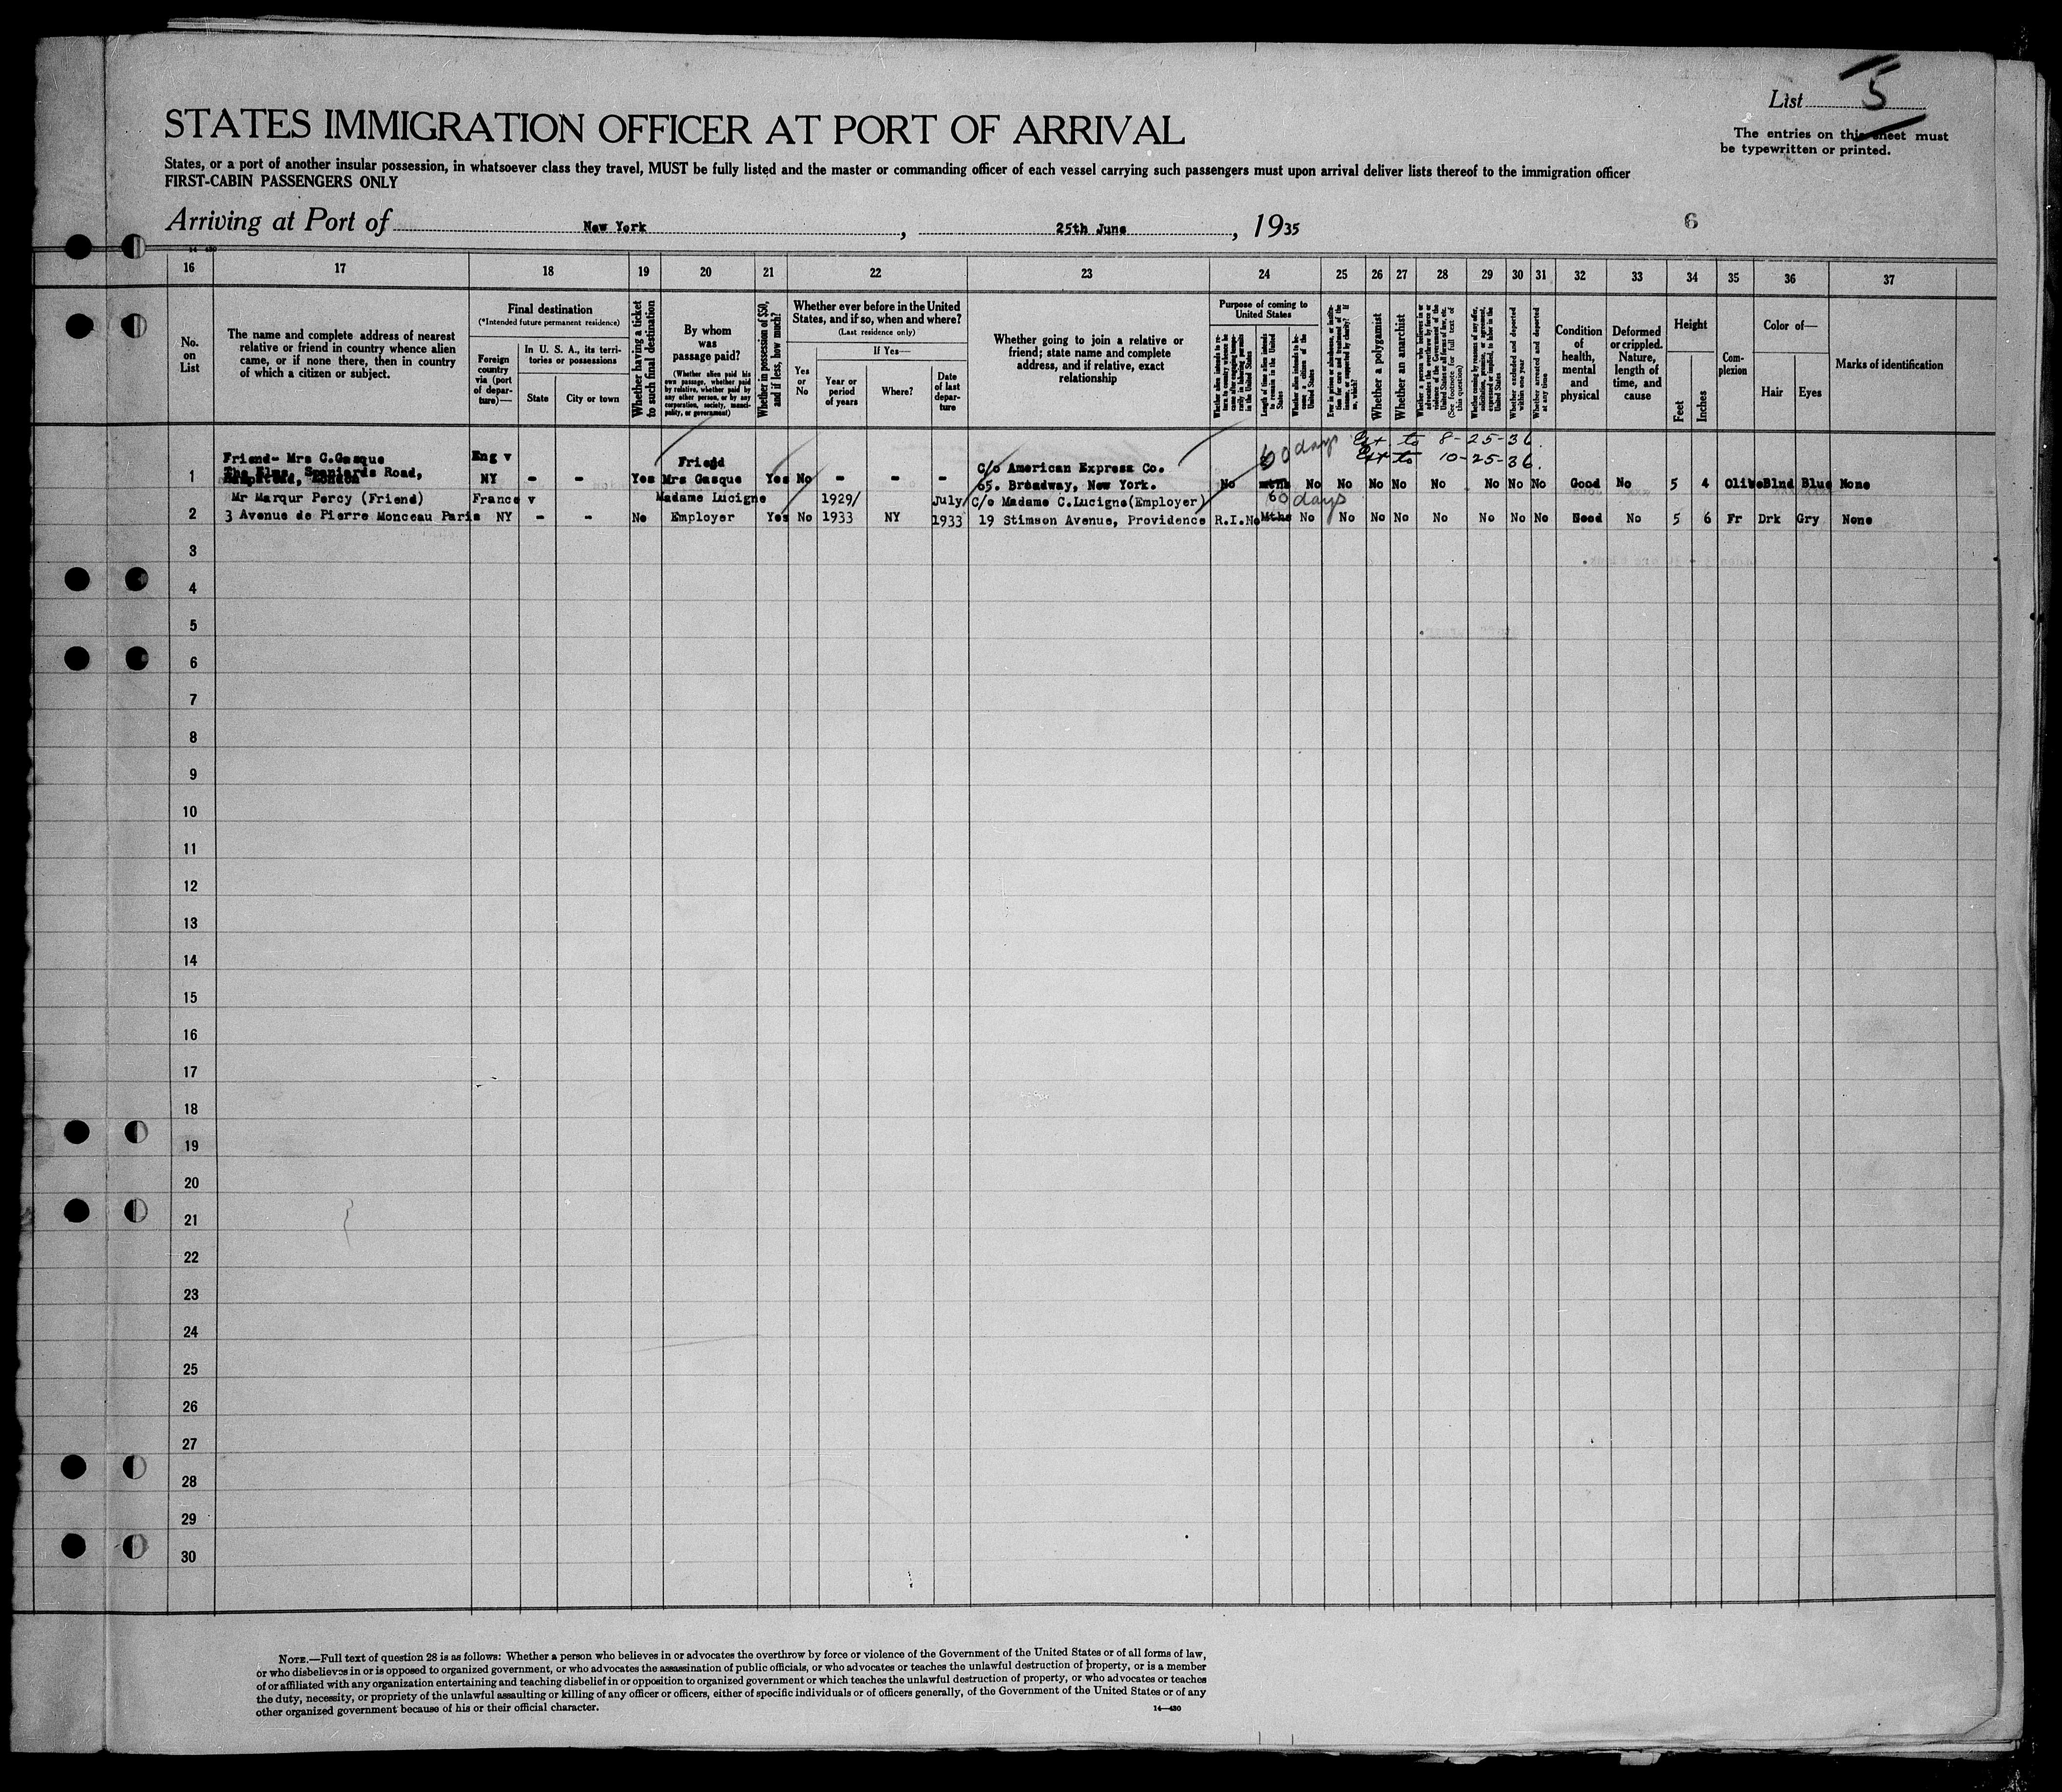 List 5
STATES IMMIGRATION OFFICER AT PORT OF ARRIVAL
The entries on this sheet must
be typewritten or printed.
States, or a port of another insular possession, in whatsoever class they travel, MUST be fully listed and the master or commanding officer of each vessel carrying such passengers must upon arrival deliver lists thereof to the immigration officer
FIRST-CABIN PASSENGERS ONLY
Arriving at Port of New York, 25th June, 1935
6
14-430
16 17 18 19 20 21 22 23 24 25 26 27 28 29 30 31 32 33 34 35 36 37
No.
on
List
The name and complete address of nearest
relative or friend in country whence alien
came, or if none there, then in country
of which a citizen or subject.
Final destination
(*Intended future permanent residence)
Foreign
country
via (port
of depar-
ture)—
In U. S. A., its terri-
tories or possessions
State
City or town
Whether having a ticket
to such final destination
By whom
was
passage paid?
(Whether alien paid his
own passage, whether paid
by relative, whether paid by
any other person, or by any
corporation, society, munici-
pality, or government)
Whether in possession of $50,
and if less, how much?
Whether ever before in the United
States, and if so, when and where?
(Last residence only)
Yes
or
No
If Yes—
Year or
period
of years
Where?
Date
of last
depar-
ture
Whether going to join a relative or
friend; state name and complete
address, and if relative, exact
relationship
Purpose of coming to
United States
Whether alien intends to re-
turn to country whence he
came after engaging tempo-
rarily in laboring pursuits
in the United States
Length of time alien intends
to remain in the United
States
Whether alien intends to be-
come a citizen of the
United States
Ever in prison or almshouse, or institu-
tion for care and treatment of the
insane, or supported by charity? If
so, which?
Whether a polygamist
Whether an anarchist
Whether a person who believes in or
advocates the overthrow by force or
violence of the Government of the
United States or all forms of law, etc.
(See footnote for full text of
this question)
Whether coming by reason of any offer,
solicitation, promise, or agreement,
expressed or implied, to labor in the
United States
Whether excluded and deported
within one year
Whether arrested and deported
at any time
Condition
of
health,
mental
and
physical
Deformed
or crippled.
Nature,
length of
time, and
cause
Height
Feet
Inches
Com-
plexion
Color of—
Hair
Eyes
Marks of identification
60 days Ext. to 8-25-36.
Ext to 10-25-36.
Friend- Mrs C.Gasque Eng v Friend C/o American Express Co.
The Elms, Spaniards Road,
Hampstead, London
1 NY - - Yes Mrs Gasque Yes No - - - 65. Broadway, New York. No mths No No No No No No No No Good No 5 4 Olive Blnd Blue None
Mr Marqur Percy (Friend) France v Madame Lucigne 1929/ July/ C/o Madame C.Lucigne(Employer) 60 days
2 3 Avenue de Pierre Monceau Paris NY - - No Employer Yes No 1933 NY 1933 19 Stimson Avenue, Providence R.I. No Mths No No No No No No No No Good No 5 6 Fr Drk Gry None
3
4
5
6
7
8
9
10
11
12
13
14
15
16
17
18
19
20
21
22
23
24
25
26
27
28
29
30
NOTE.—Full text of question 28 is as follows: Whether a person who believes in or advocates the overthrow by force or violence of the Government of the United States or of all forms of law,
or who disbelieves in or is opposed to organized government, or who advocates the assassination of public officials, or who advocates or teaches the unlawful destruction of property, or is a member
of or affiliated with any organization entertaining and teaching disbelief in or opposition to organized government or which teaches the unlawful destruction of property, or who advocates or teaches
the duty, necessity, or propriety of the unlawful assaulting or killing of any officer or officers, either of specific individuals or of officers generally, of the Government of the United States or of any
other organized government because of his or their official character.
14—430